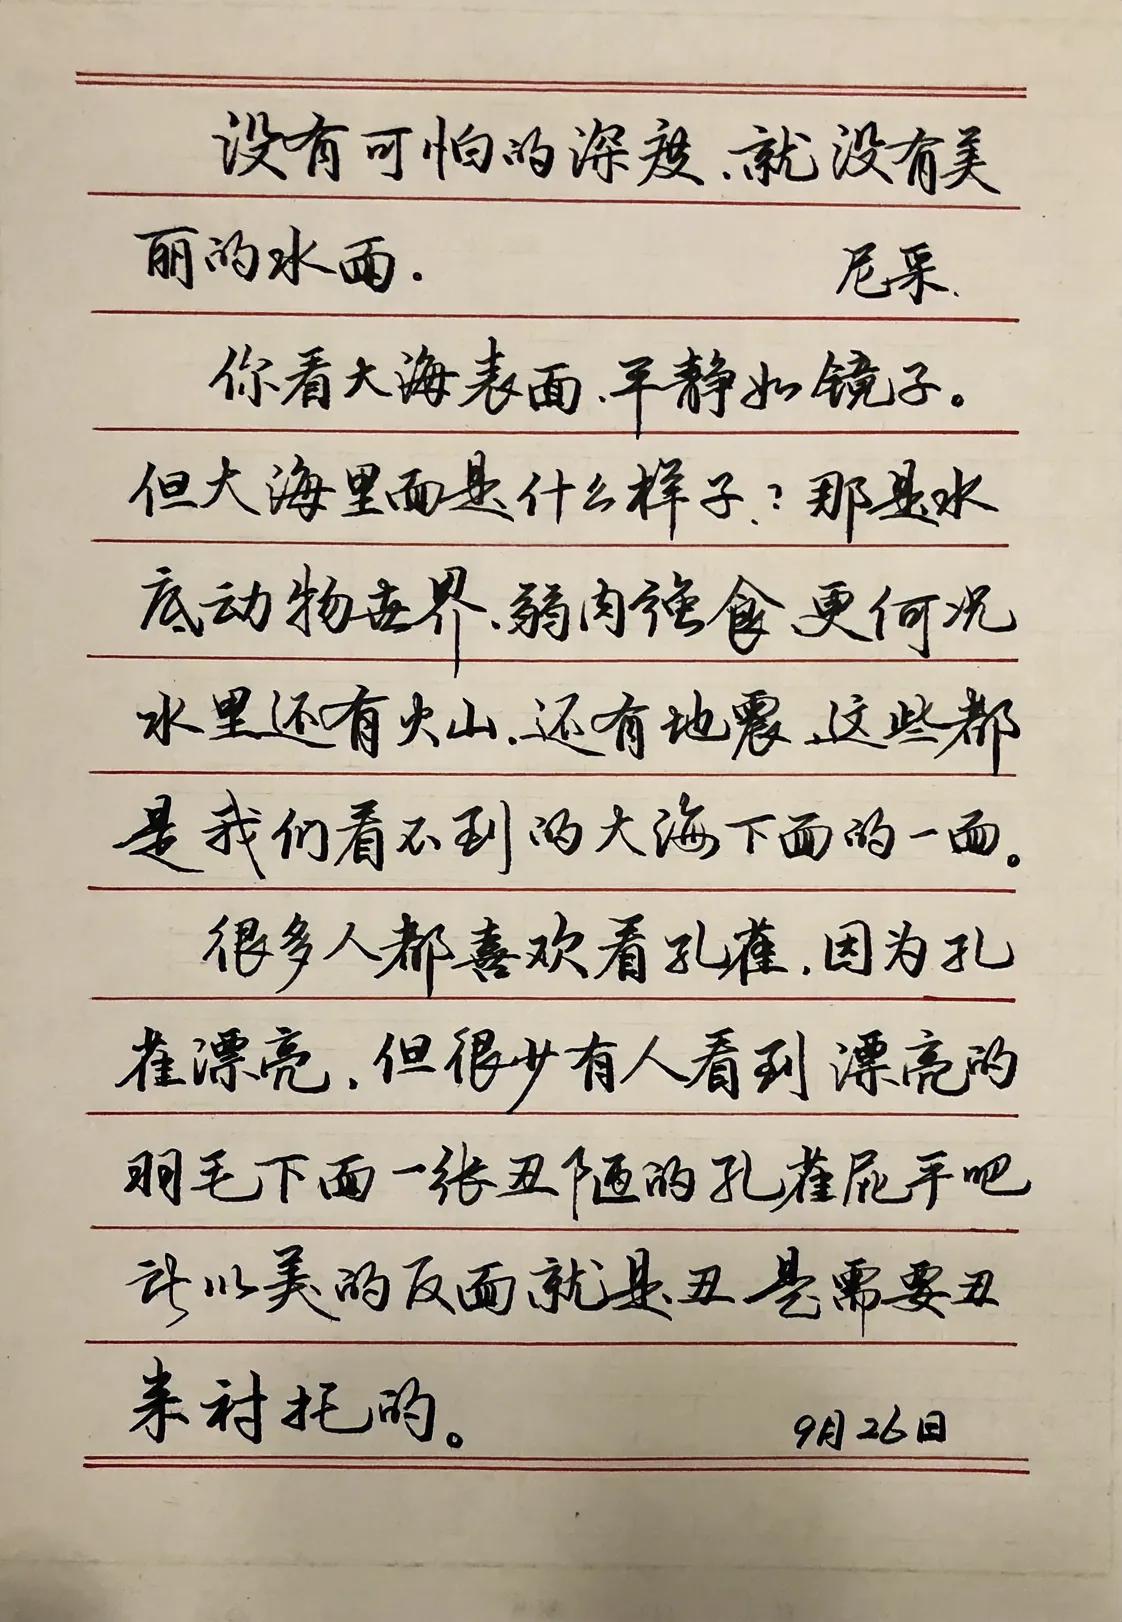 没有可怕的深度、就没有美
丽的水面.
尼采.
你看大海表面、平静如镜子。
但大海里面是什么样子、？那是水
底动物世界、弱肉强食、更何况
水里还有火山、还有地震、这些都
是我们看不到的大海下面的一面。
很多人都喜欢看孔雀，因为孔
雀漂亮，但很少有人看到漂亮的
羽毛下面一张丑陋的孔雀屁 吧
所以美的反面就是丑 是需要丑
来衬托的。
9月26日